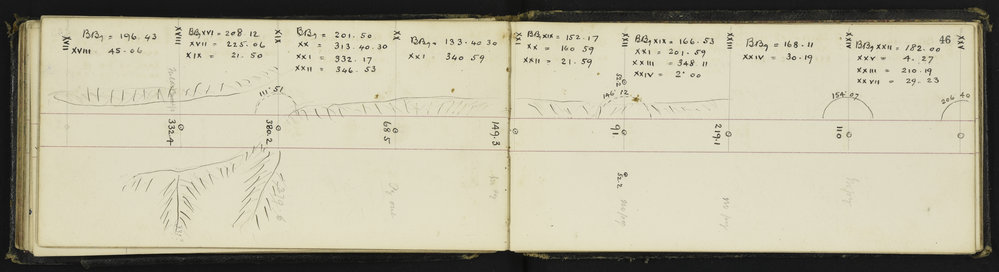 46
XVII
BBg = 196.43
XVIII 45.06
XVIII
BBg XVI = 208.12
XVII = 225.06
XIX = 21.50
XIX
BBg = 201.50
XX = 313.40.30
XXI = 332.17
XXII = 346.53
XX
BBg = 133.40.30
XXI 340.59
XXI
BBg XIX = 152.17
XX = 160.59
XXII = 21.59
XXII
BBg XIX = 166.53
XXI = 201.59
XXIII = 348.11
XXIV = 2.00
XXIII
BBg = 168.11
XXIV = 30.19
XXIV
BBg XXII = 182.00
XXV = 4.27
XXIII = 210.19
XXVII = 29.23
XXV
111.51
52.2
146.12
154.07
206.40
332.4
380.2
68.5
149.3
91
219.1
110
52.2
No peg